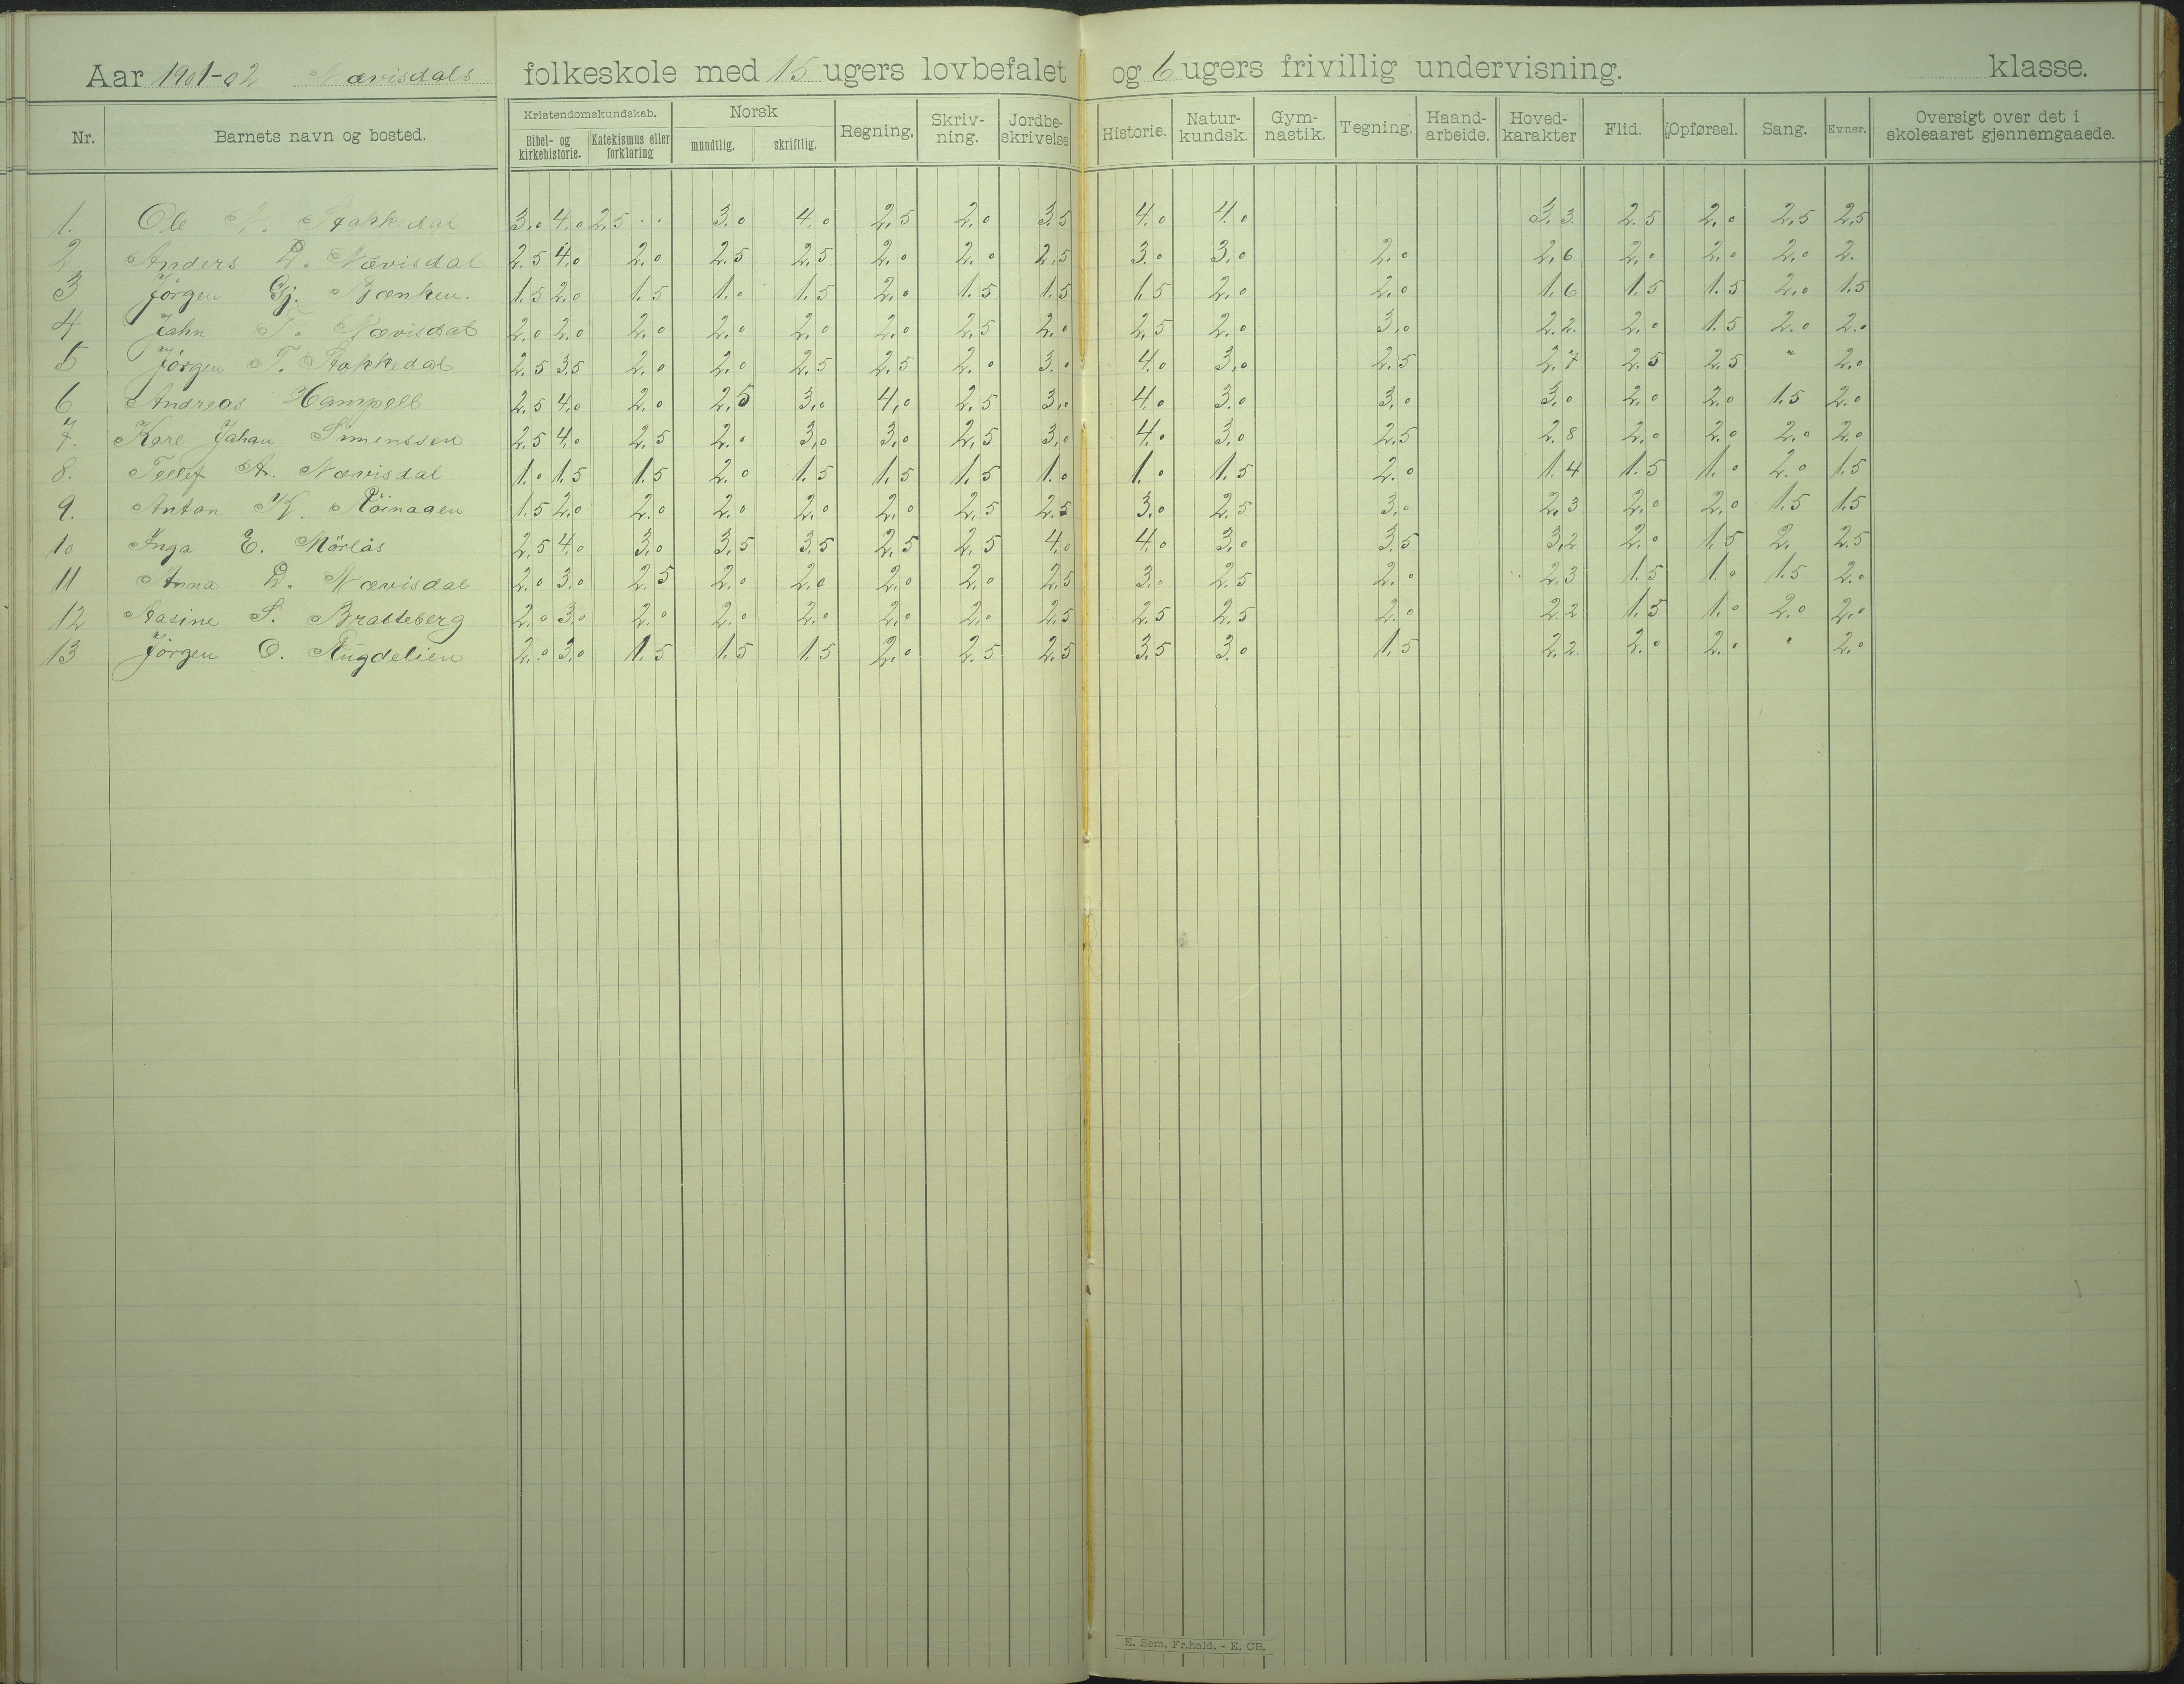 Aar 1901-02 Nævisdals folkeskole med 15 ugers lovbefalet og 6 ugers frivillig undervisning. klasse.
Nr. Barnets navn og bosted. Kristendomskundskab. Bibel- og kirkehistorie. Katekismus eller forklaring Norsk mundtlig. skriftlig. Regning. Skriv-ning. Jordbe-skrivelse Historie. Natur-kundsk. Gym-nastik. Tegning. Haand-arbeide. Hoved-karakter Flid. Opførsel. Sang. Evner. Oversigt over det i skoleaaret gjennemgaaede.
1. Ole N. Stakkedal 3,0 4,0 2,5 . . 3,0 4,0 2,5 2,0 3,5 4,0 4,0 3,3 2,5 2,0 2,5 2,5
2 Anders D. Nævisdal 2,5 4,0 2,0 2,5 2,5 2,0 2,0 2,5 3,0 3,0 2,0 2,6 2,0 2,0 2,0 2.
3 Jörgen Gj. Bænken. 1,5 2,0 1,5 1,0 1,5 2,0 1,5 1,5 1,5 2,0 2,0 1,6 1,5 1,5 2,0 1,5
4 Jahn T. Nævisdal 2,0 2,0 2,0 2,0 2,0 2,0 2,5 2,0 2,5 2,0 3,0 2,2 2,0 1,5 2,0 2,0
5 Jörgen T. Stakkedal 2,5 3,5 2,0 2,0 2,5 2,5 2,0 3,0 4,0 3,0 2,5 2,7 2,5 2,5 " 2,0
6 Andreas Hampell 2,5 4,0 2,0 2,5 3,0 4,0 2,5 3,0 4,0 3,0 3,0 3,0 2,0 2,0 1,5 2,0
7. Karl Jahan Simenssen 2,5 4,0 2,5 2,0 3,0 3,0 2,5 3,0 4,0 3,0 2,5 2,8 2,0 2,0 2,0 2,0
8. Tellef A. Nævisdal 1,0 1,5 1,5 2,0 1,5 1,5 1,5 1,0 1,0 1,5 2,0 1,4 1,5 1,0 2,0 1,5
9. Anton K. Röinaaen 1,5 2,0 2,0 2,0 2,0 2,0 2,5 2,5 3,0 2,5 3,0 2,3 2,0 2,0 1,5 1,5
10 Inga E. Mörlås 2,5 4,0 3,0 3,5 3,5 2,5 2,5 4,0 4,0 3,0 3,5 3,2 2,0 1,5 2, 2,5
11 Anna D. Nævisdal 2,0 3,0 2,5 2,0 2,0 2,0 2,0 2,5 3,0 2,5 2,0 2,3 1,5 1,0 1,5 2,0
12 Aasine S. Bratteberg 2,0 3,0 2,0 2,0 2,0 2,0 2,0 2,5 2,5 2,5 2,0 2,2 1,5 1,0 2,0 2,0
13 Jörgen O. Rugdelien 2,0 3,0 1,5 1,5 1,5 2,0 2,5 2,5 3,5 3,0 1,5 2,2 2,0 2,0 " 2,0
E. Sem, Fr.hald. - E. CB.